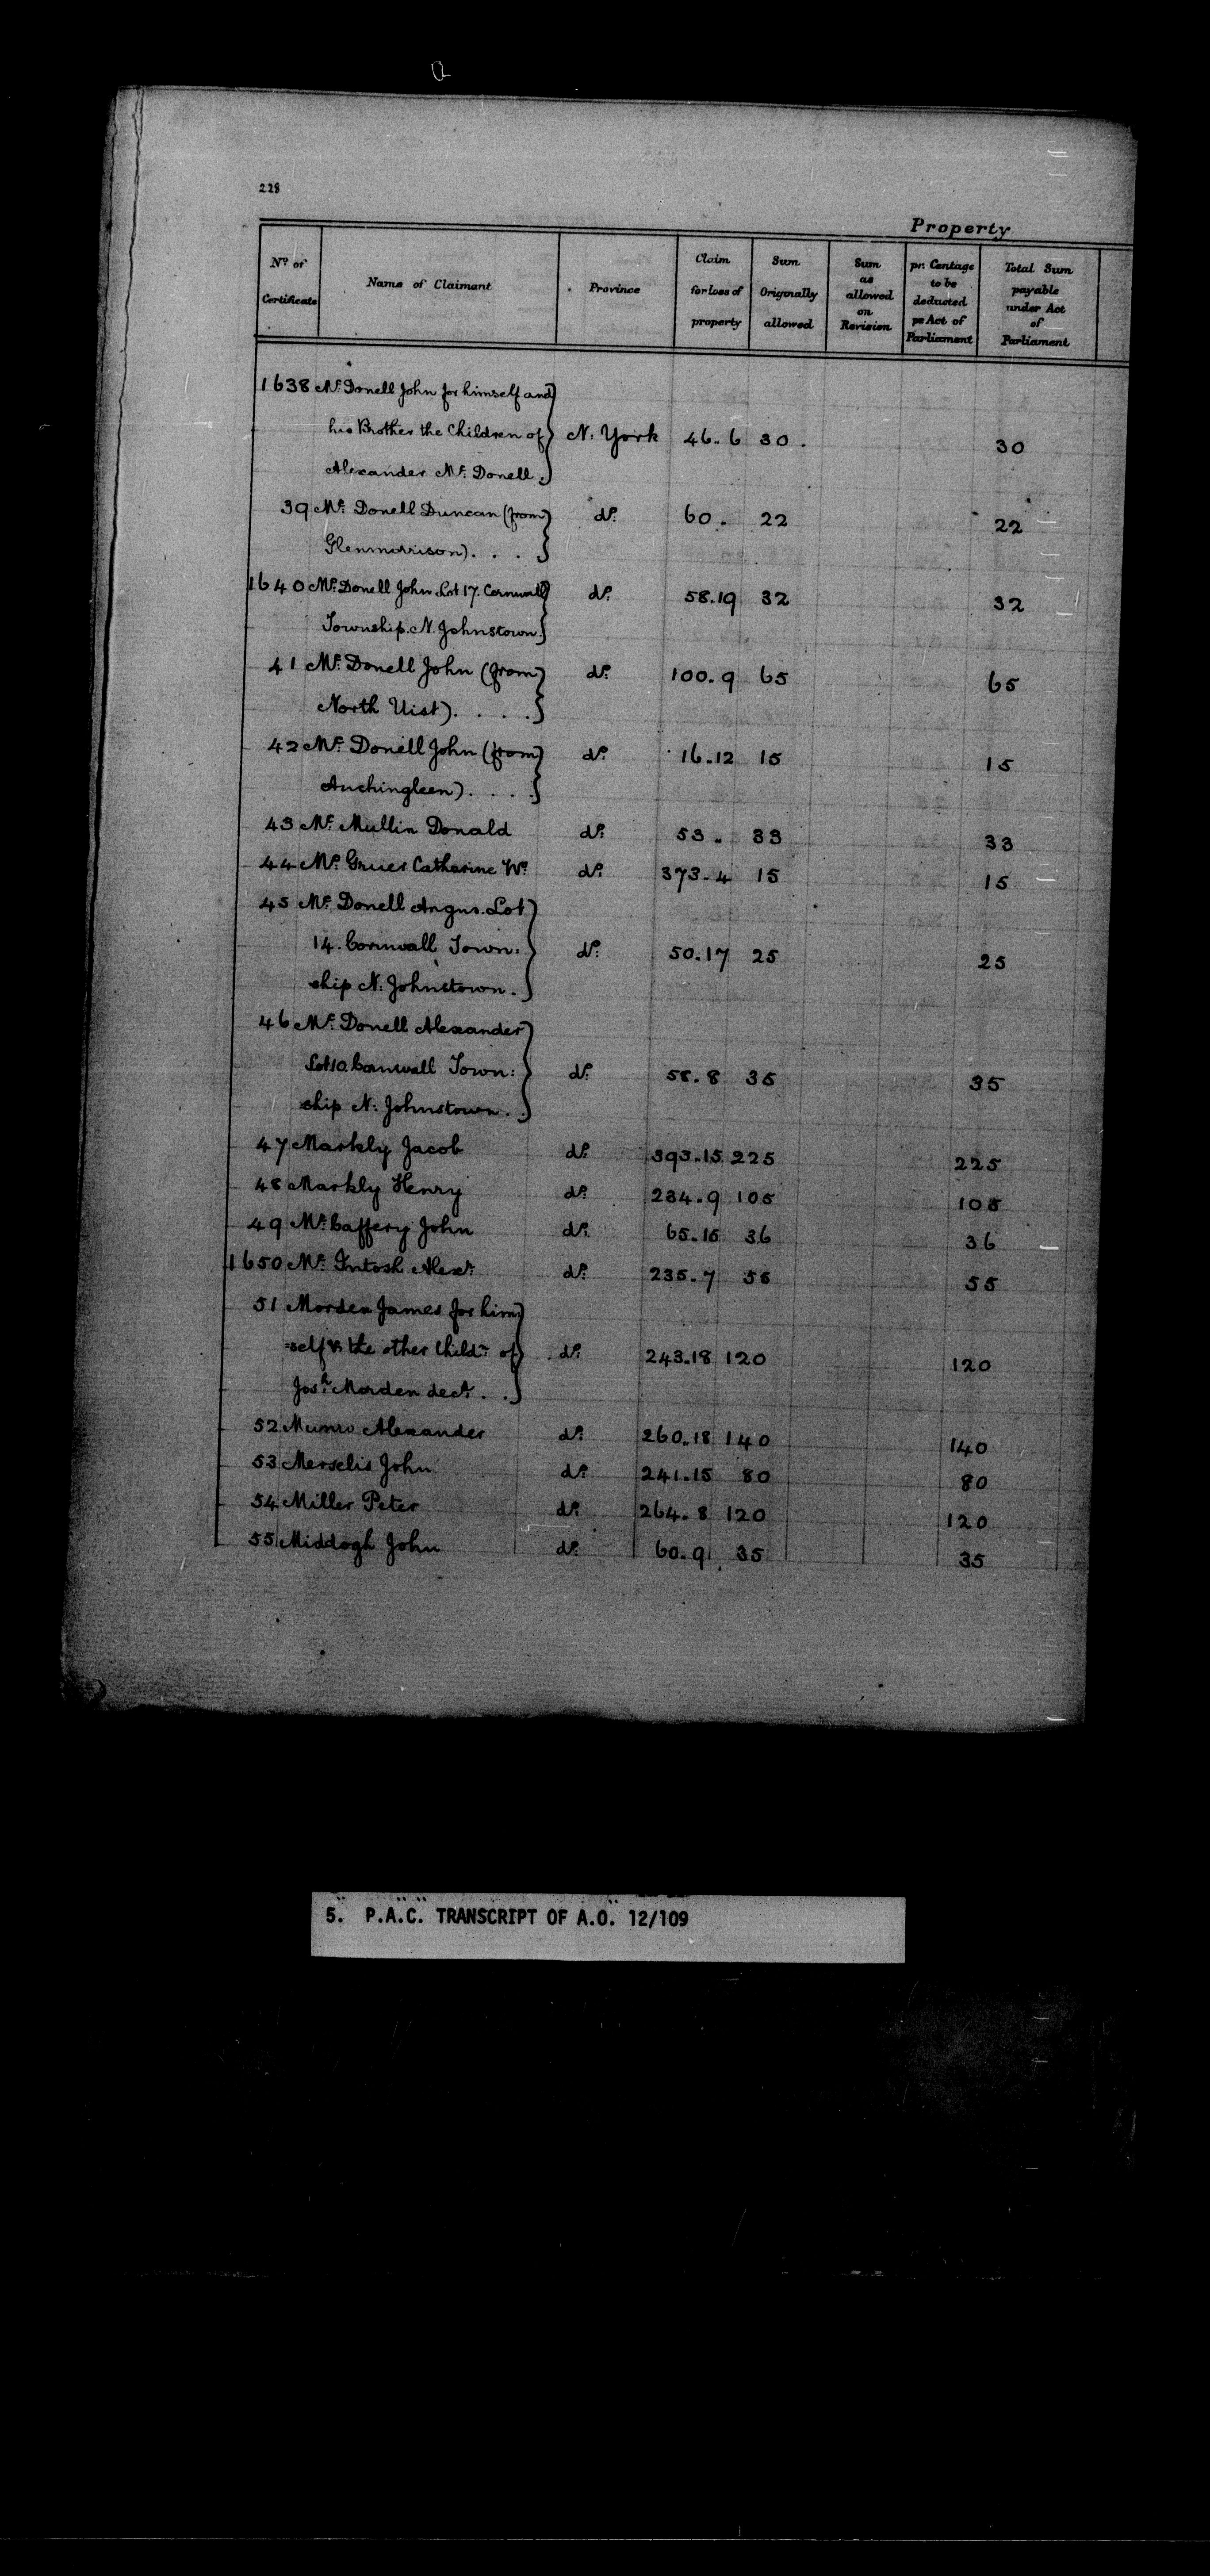 228
Property
No. of Certificate | Name of Claimant | Province | Claim for loss of property | Sum Originally allowed | Sum as allowed on Revision | pr. Centage to be deducted pr Act of Parliament | Total Sum payable under Act of Parliament
1638 Mc. Donell John for himself and
his Brother the Children of N. York 46. 6 30. 30
Alexander Mc. Donell.
39 Mc. Donell Duncan (from do. 60. 22 22
Glenmorrison). . . .
1640 Mc. Donell John Lot 17. Cornwall do. 58.19 32 32
Township. N. Johnstown.
41 Mc. Donell John (from do. 100. 9 65 65
North Uist). . . . .
42 Mc. Donell John (from do. 16.12 15 15
Auchingleen). . . .
43 Mc. Mullin Donald do. 53. 33 33
44 Mc. Gruer Catharine Wo. do. 373. 4 15 15
45 Mc. Donell Angus. Lot
14. Cornwall Town: do. 50.17 25 25
ship N. Johnstown.
46 Mc. Donell Alexander
Lot 10 Cornwall Town: do. 58. 8 35 35
ship N: Johnstown.
47 Markly Jacob do. 393.15 225 225
48 Markly Henry do. 234. 9 105 105
49 Mc. Caffery John do. 65.15 36 36
1650 Mc. Intosh Alexr. do. 235. 7 55 55
51 Morden James for him
=self & the other Childn. of do. 243.18 120 120
Josh. Morden decd. . .
52 Munro Alexander do. 260.18 140 140
53 Merselis John do. 241.15 80 80
54 Miller Peter do. 264. 8 120 120
55 Middogh John do. 60. 9 35 35
5. P.A.C. TRANSCRIPT OF A.O. 12/109